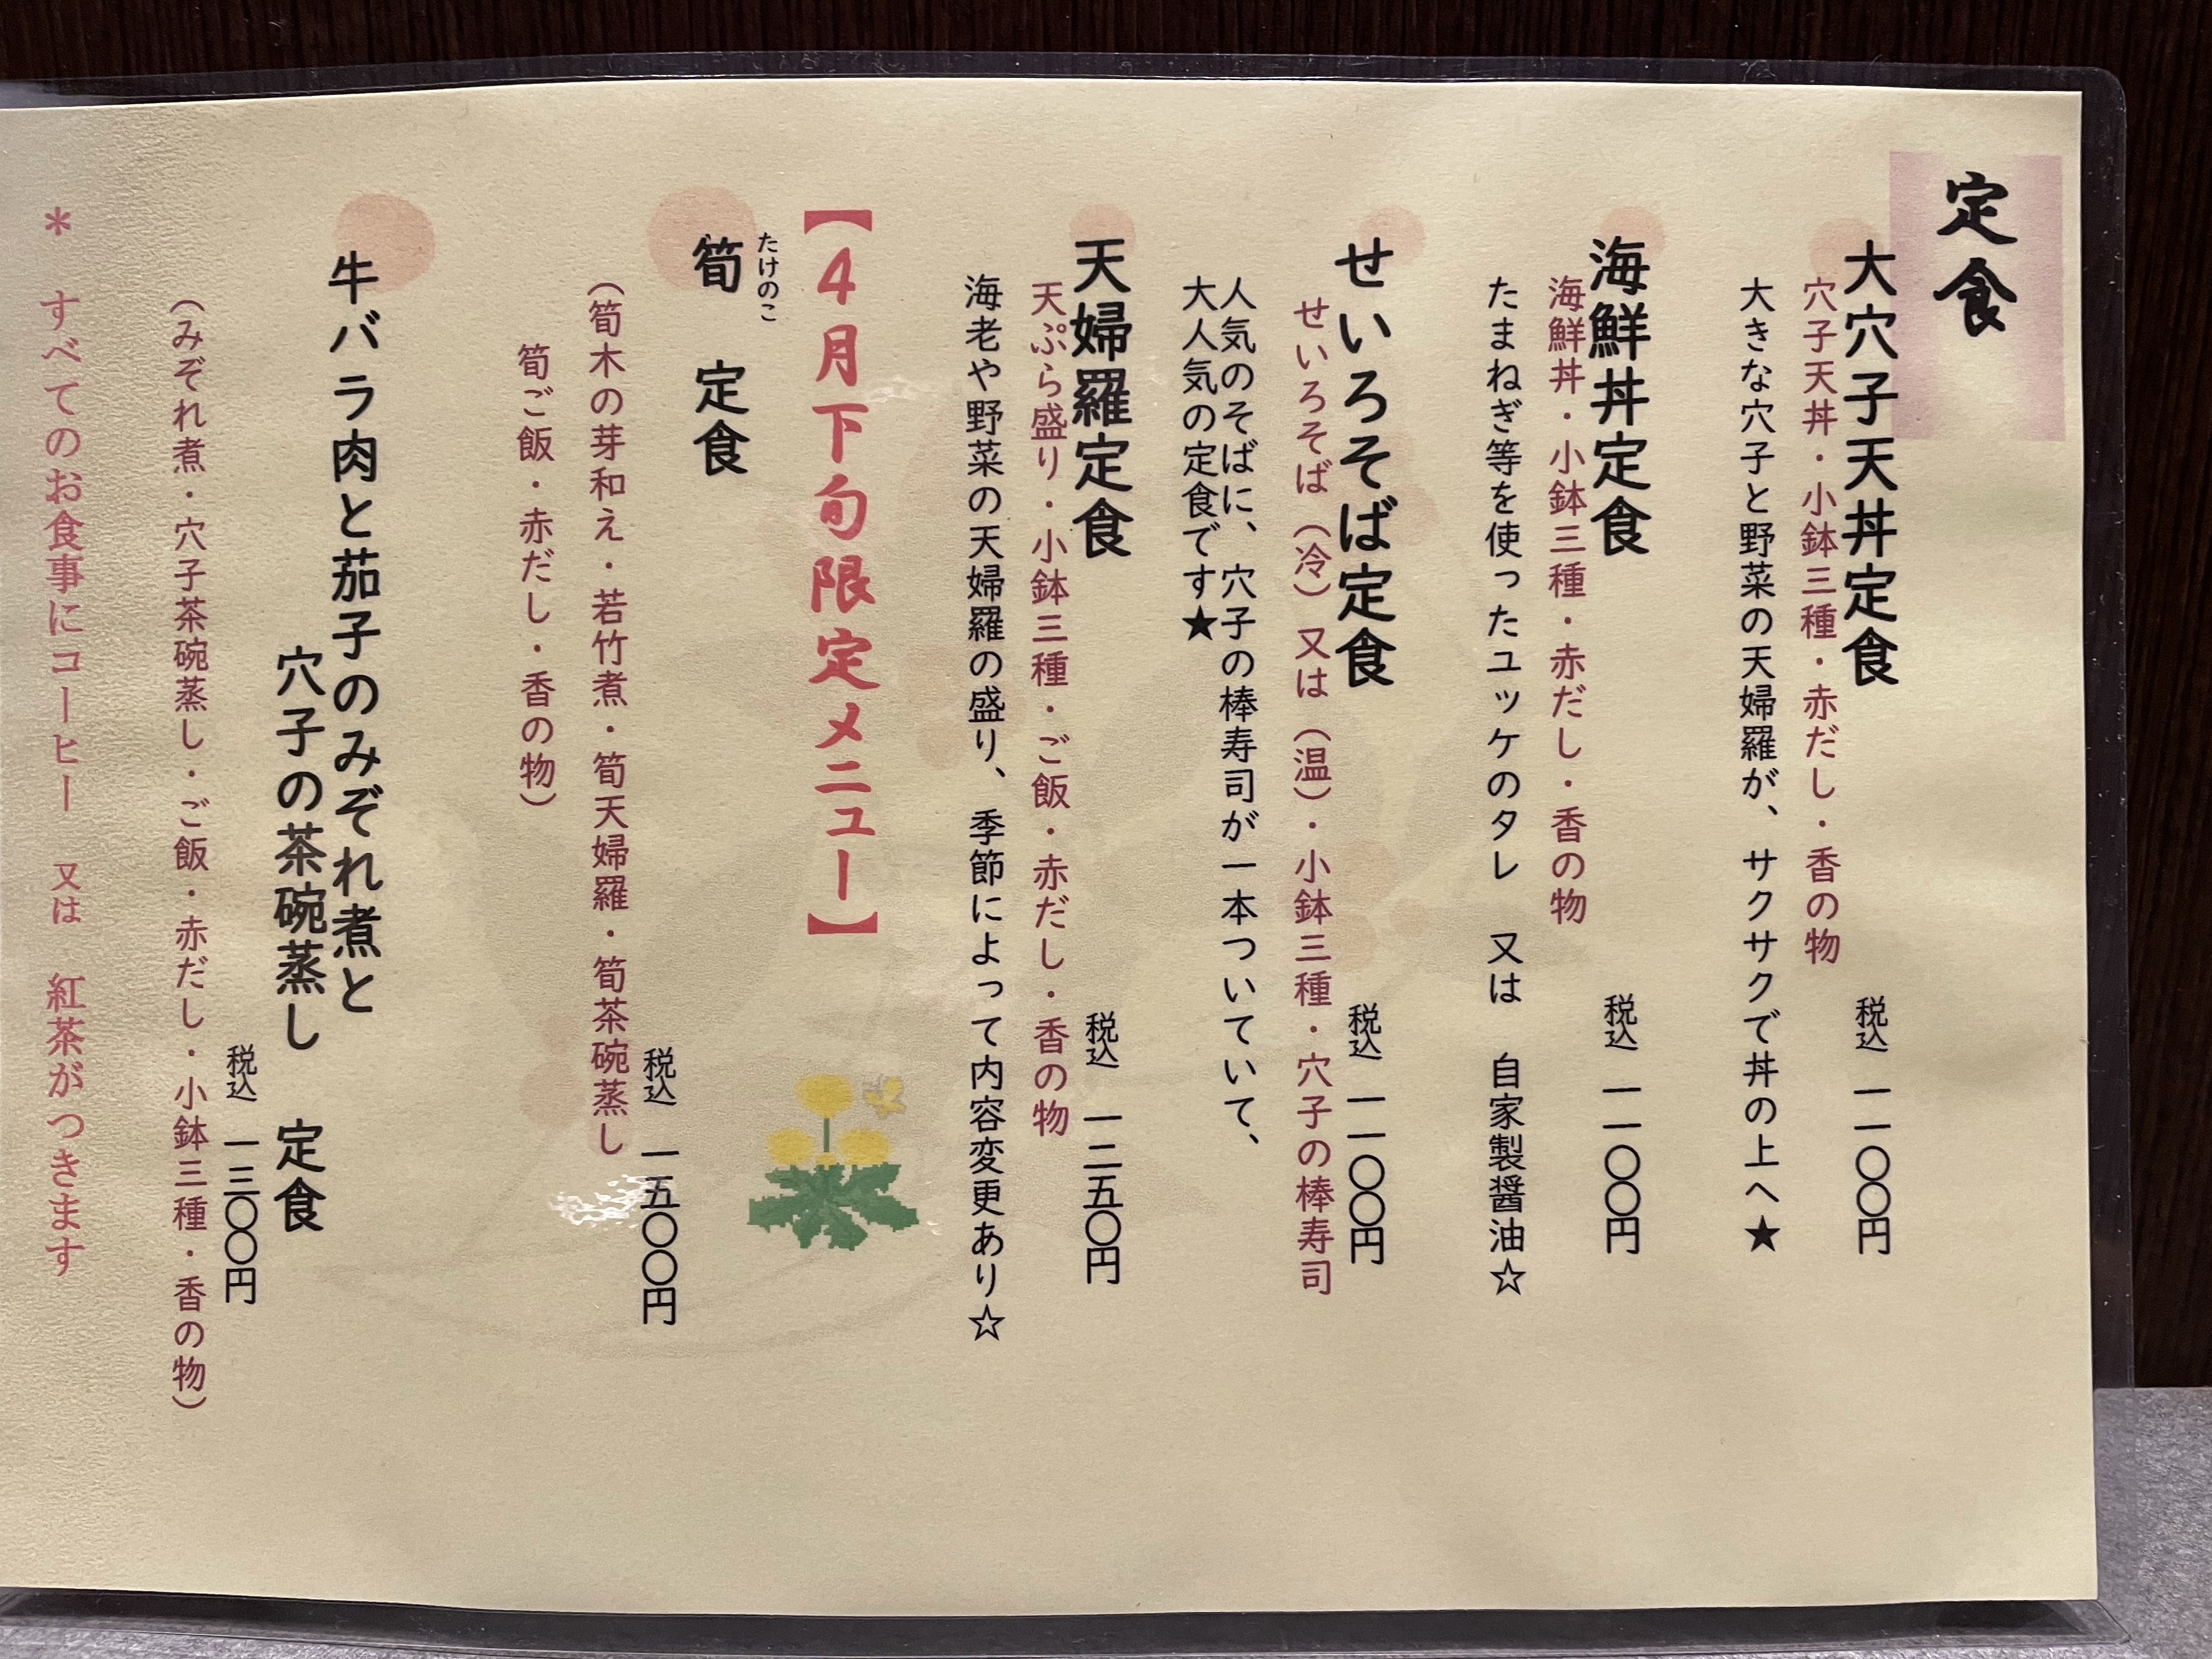 定食
大穴子天丼定食
税込 一一〇〇円
穴子天丼・小鉢三種・赤だし・香の物
大きな穴子と野菜の天婦羅が、サクサクで丼の上へ★
海鮮丼定食
税込 一一〇〇円
海鮮丼・小鉢三種・赤だし・香の物
たまねぎ等を使ったユッケのタレ 又は 自家製醤油☆
せいろそば定食
税込 一一〇〇円
せいろそば（冷）又は（温）・小鉢三種・穴子の棒寿司
人気のそばに、穴子の棒寿司が一本ついていて、
大人気の定食です★
天婦羅定食
税込 一二五〇円
天ぷら盛り・小鉢三種・ご飯・赤だし・香の物
海老や野菜の天婦羅の盛り、季節によって内容変更あり☆
【4月下旬限定メニュー】
たけのこ
筍 定食
税込 一五〇〇円
（筍木の芽和え・若竹煮・筍天婦羅・筍茶碗蒸し
筍ご飯・赤だし・香の物）
牛バラ肉と茄子のみぞれ煮と
穴子の茶碗蒸し 定食
税込 一三〇〇円
（みぞれ煮・穴子茶碗蒸し・ご飯・赤だし・小鉢三種・香の物）
＊ すべてのお食事にコーヒー 又は 紅茶がつきます